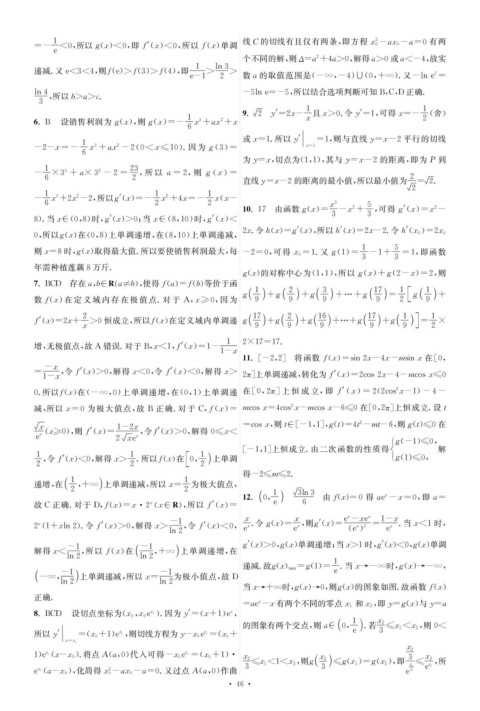 =-1/e<0,所以 g(x)<0,即 f′(x)<0,所以 f(x)单调
递减.又 e<3<4,则 f(e)>f(3)>f(4),即 1/(e-1)>ln 3/2>
ln 4/3,所以 b>a>c.
6. B 设销售利润为 g(x),则 g(x)=-1/6 x³+ax²+x
-2-x=-1/6 x³+ax²-2(0<x≤10).因为 g(3)=
-1/6×3³+a×3²-2=23/2,所以 a=2,则 g(x)=
-1/6 x³+2x²-2,所以g′(x)=-1/2 x²+4x=-1/2 x(x-
8).当 x∈(0,8)时,g′(x)>0;当 x∈(8,10)时,g′(x)<
0,所以g(x)在(0,8)上单调递增,在(8,10)上单调递减,
则 x=8 时,g(x)取得最大值.所以要使销售利润最大,每
年需种植莲藕 8 万斤.
7. BCD 存在 a,b∈R(a≠b),使得 f(a)=f(b)等价于函
数 f(x)在定义域内存在极值点.对于 A,x≥0,因为
f′(x)=2x+2/x>0 恒成立,所以f(x)在定义域内单调递
增,无极值点,故 A 错误.对于 B,x<1,f′(x)=1-1/(1-x)
=-x/(1-x),令 f′(x)>0,解得 x<0,令 f′(x)<0,解得 x>
0.所以f(x)在(-∞,0)上单调递增,在(0,1)上单调递
减,所以 x=0 为极大值点,故 B 正确.对于 C,f(x)=
√x/eˣ(x≥0),则 f′(x)=(1-2x)/(2√x eˣ),令f′(x)>0,解得 0≤x<
1/2,令 f′(x)<0,解得 x>1/2.所以f(x)在[0,1/2)上单调
递增,在(1/2,+∞)上单调递减,所以 x=1/2 为极大值点,
故 C 正确.对于 D,f(x)=x·2ˣ(x∈R),所以 f′(x)=
2ˣ(1+xln 2).令 f′(x)>0,解得 x>-1/ln 2,令 f′(x)<0,
解得 x<-1/ln 2,所以 f(x)在(-1/ln 2,+∞)上单调递增,在
(-∞,-1/ln 2)上单调递减,所以 x=-1/ln 2 为极小值点,故 D
正确.
8. BCD 设切点坐标为(x₀,x₀e^x₀).因为 y′=(x+1)eˣ,
所以 y′|x=x₀ =(x₀+1)e^x₀,则切线方程为 y-x₀e^x₀=(x₀+
1)e^x₀(x-x₀).将点 A(a,0)代入可得-x₀e^x₀=(x₀+1)·
e^x₀(a-x₀),化简得 x₀²-ax₀-a=0.又过点 A(a,0)作曲
线 C 的切线有且仅有两条,即方程 x₀²-ax₀-a=0 有两
个不同的解,则 Δ=a²+4a>0,解得 a>0 或 a<-4,故实
数 a 的取值范围是(-∞,-4)∪(0,+∞).又-ln e⁵=
-5ln e=-5,所以结合选项判断可知 B,C,D 正确.
9. √2 y′=2x-1/x 且 x>0.令 y′=1,可得 x=-1/2(舍)
或 x=1.所以 y′|x=1 =1,则与直线 y=x-2 平行的切线
为 y=x,切点为(1,1),其与 y=x-2 的距离,即为 P 到
直线 y=x-2 的距离的最小值,所以最小值为 2/√2=√2.
10. 17 由函数 g(x)=x³/3-x²+5/3,可得 g′(x)=x²-
2x.令 h(x)=g′(x),所以 h′(x)=2x-2.令 h′(x₀)=2x₀
-2=0,可得 x₀=1.又 g(1)=1/3-1+5/3=1,即函数
g(x)的对称中心为(1,1),所以 g(x)+g(2-x)=2,则
g(1/9)+g(2/9)+g(3/9)+…+g(17/9)=1/2[g(1/9)+
g(17/9)+g(2/9)+g(16/9)+…+g(17/9)+g(1/9)]=1/2×
2×17=17.
11. [-2,2] 将函数 f(x)=sin 2x-4x-msin x 在[0,
2π]上单调递减,转化为 f′(x)=2cos 2x-4-mcos x≤0
在[0,2π]上恒成立,即 f′(x)=2(2cos²x-1)-4-
mcos x=4cos²x-mcos x-6≤0 在[0,2π]上恒成立.设 t
=cos x,则 t∈[-1,1],g(t)=4t²-mt-6,则 g(t)≤0 在
[-1,1]上恒成立.由二次函数的性质得{g(-1)≤0,g(1)≤0, 解
得-2≤m≤2.
12. (0,1/e) 3ln 3/6 由 f(x)=0 得 aeˣ-x=0,即 a=
x/eˣ.令 g(x)=x/eˣ,则g′(x)=(eˣ-xeˣ)/(eˣ)²=(1-x)/eˣ.当 x<1 时,
g′(x)>0,g(x)单调递增;当 x>1 时,g′(x)<0,g(x)单调
递减.故g(x)max=g(1)=1/e.当 x→-∞时,g(x)→-∞,
当 x→+∞时,g(x)→0,则g(x)的图象如图.故函数 f(x)
=aeˣ-x 有两个不同的零点 x₁ 和 x₂,即 y=g(x)与 y=a
的图象有两个交点,则 a∈(0,1/e).若 x₂/3≤x₁<x₂,则 0<
x₂/3≤x₁<1<x₂,则g(x₂/3)≤g(x₁)=g(x₂),即 (x₂/3)/e^(x₂/3)≤x₂/e^x₂,所
· 46 ·